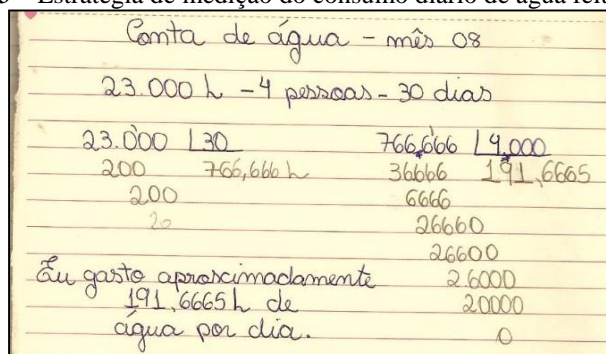 Estratégia de medição do consumo diário de água
Conta de água - mês 08
23.000 L - 4 pessoas - 30 dias
23.000 | 30
200 766,666 L
200
20
766,666 | 4,000
36666 191,6665
6666
26660
26600
26000
20000
0
Eu gasto aproximadamente
191,6665 L de
água por dia.